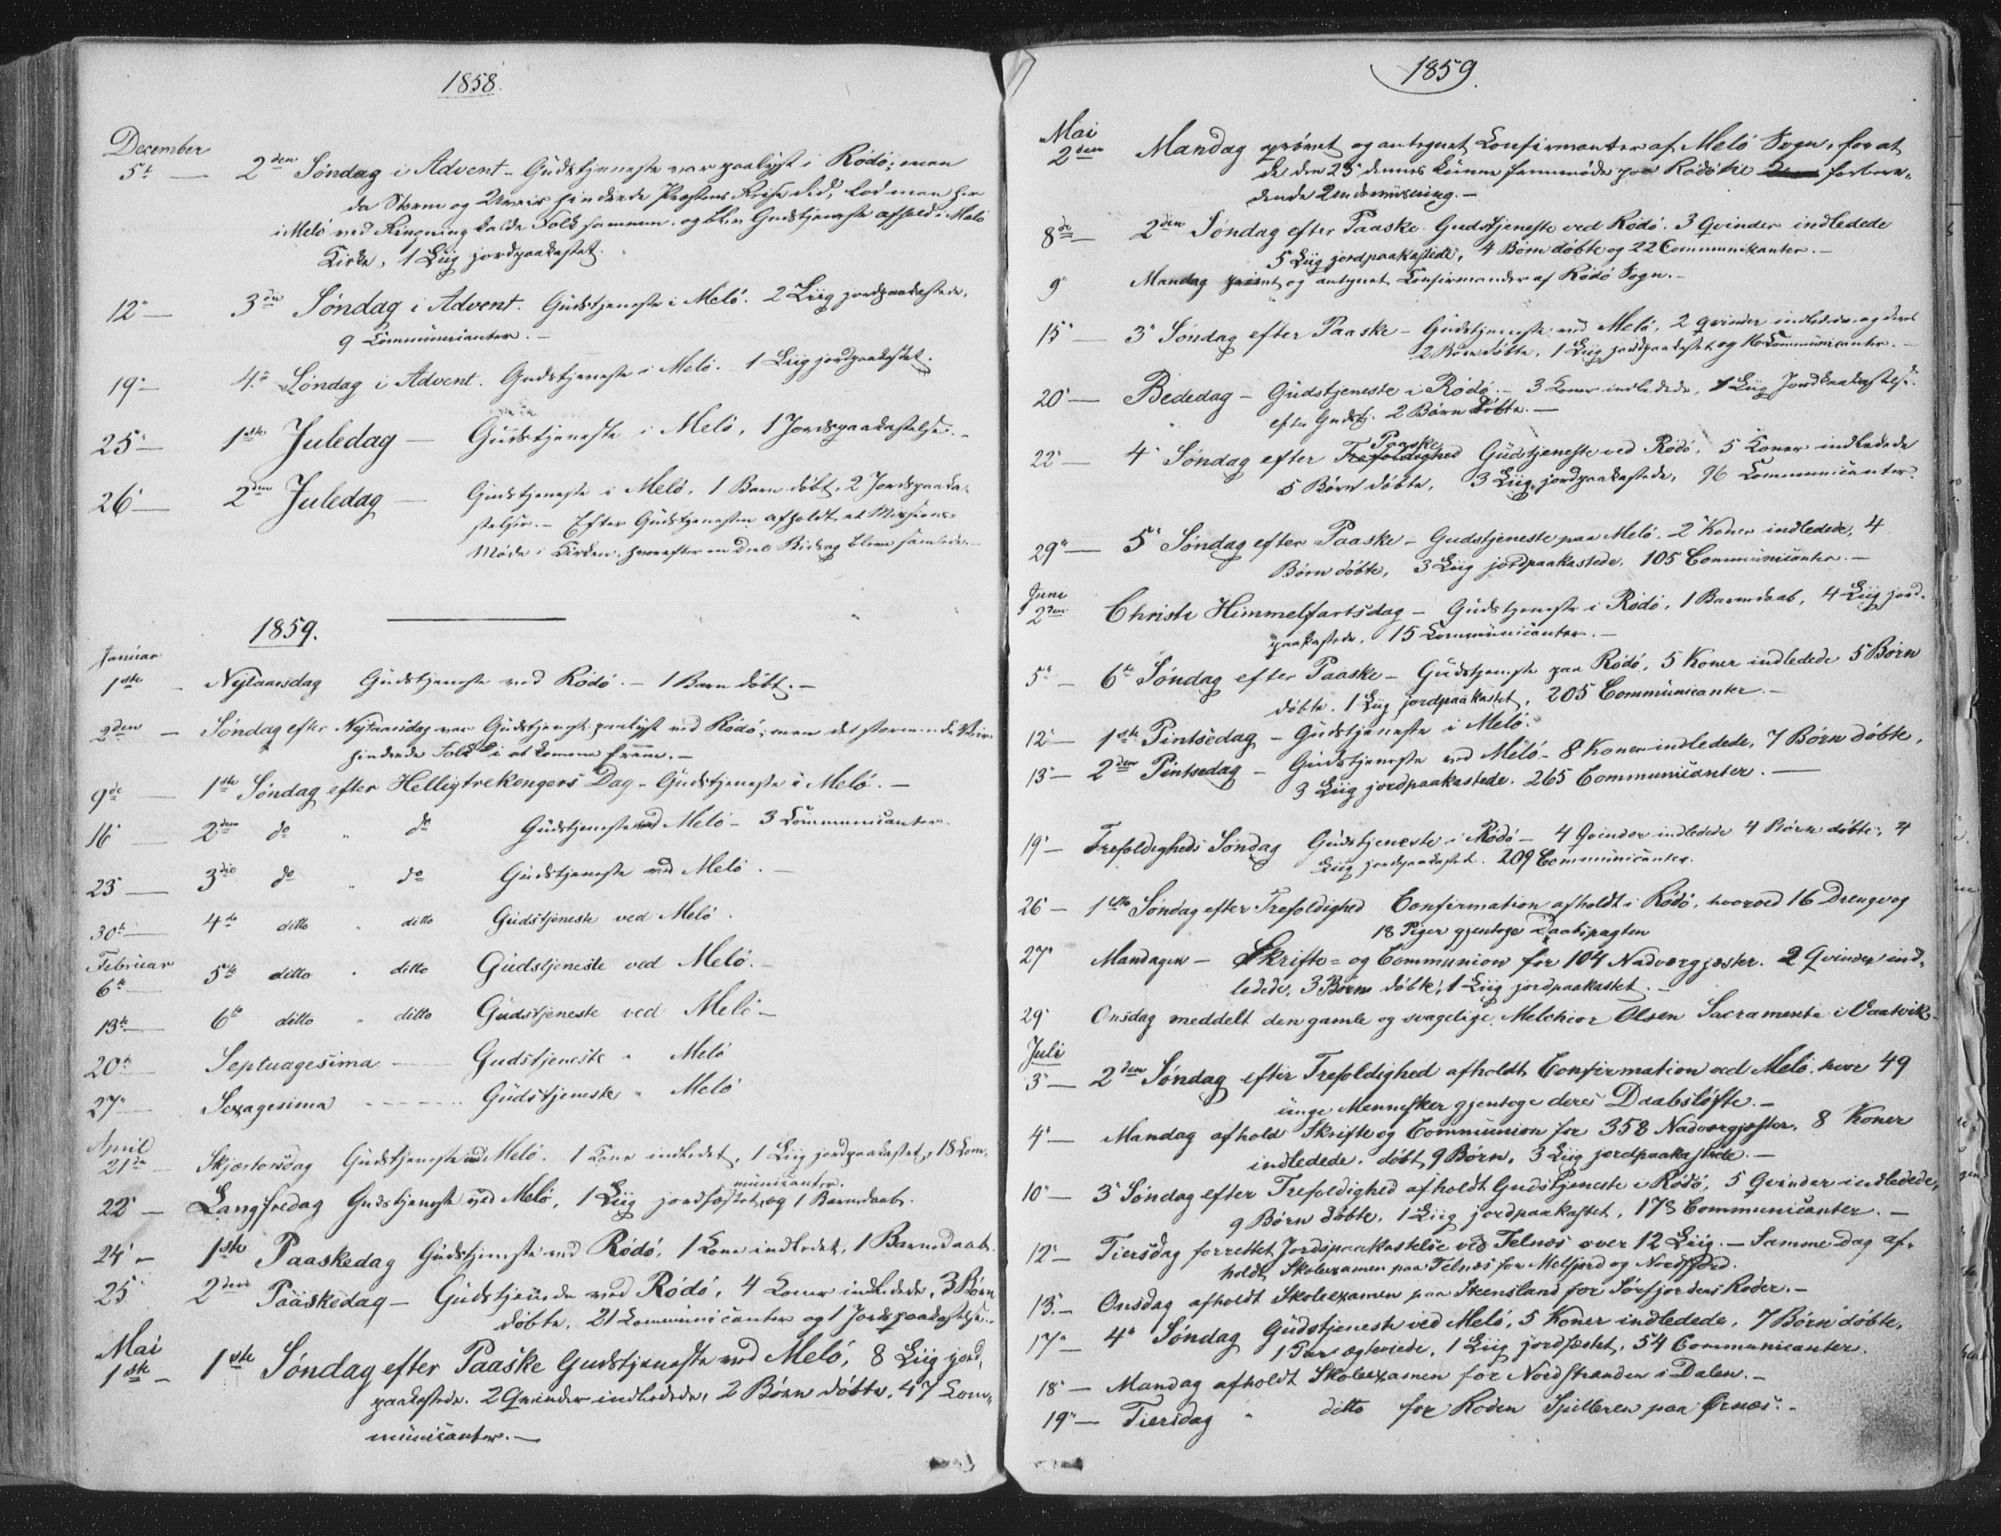 1858.
December
5te — 2den Søndag i Advent – Gudstjeneste var paalyst i Rødø; men
da Storm og Uveir hindrede Præstens Reise did, lod man her
i Melø ved Ringning kalde Folk sammen, og blev Gudstjeneste afholdt i Melø
Kirke, 1 Liig jordpaakastet.
12" — 3die Søndag i Advent. Gudstjeneste i Melø. 2 Liig jordpaakastede,
9 Communicanter. –
19" — 4de Søndag i Advent. Gudstjeneste i Melø. 1 Liig jordpaakastet.
25" — 1ste Juledag — Gudstjeneste i Melø, 1 Jordspaakastelse. –
26" — 2den Juledag — Gudstjeneste i Melø, 1 Barn døbt, 2 Jordspaaka-
stelser. – Efter Gudstjenesten afholdt et Missions-
Møde i Kirken, hvorefter en Deel Bidrag bleve samlede. –
1859.
Januar
1ste – Nytaarsdag Gudstjeneste ved Rødø. – 1 Barn døbt. –
2den – Søndag efter Nytaarsdag var Gudstjeneste paalyst ved Rødø; men det stormende Veir
hindrede Folk i at komme frem. –
9de — 1ste Søndag efter Helligtrekongers Dag – Gudstjeneste i Melø. –
16" — 2den do " do Gudstjeneste ved Melø – 3 Communicanter.
23" — 3die do " do Gudstjeneste ved Melø. –
30te — 4de ditto " ditto Gudstjeneste ved Melø.
Februar
6te — 5te ditto " ditto Gudstjeneste ved Melø. –
13te — 6te ditto " ditto Gudstjeneste ved Melø –
20de — Septuagesima — Gudstjeneste " Melø
27" — Sexagesima – – – – Gudstjeneste " Melø
April
21de – Skjærtorsdag Gudstjeneste ved Melø. 1 Kone indledet, 1 Liig jordpaakastet, 18 Com-
municanter.
22" — Langfredag Gudstjeneste ved Melø, 1 Liig jordfæstet, og 1 Barnedaab.
24" – 1ste Paaskedag Gudstjeneste ved Rødø, 1 Kone indledet, 1 Barnedaab.
25" 2den Paaskedag – Gudstjeneste ved Rødø, 4 Koner indledede, 3 Børn
døbte, 21 Communicanter og 1 Jordspaakastelse.
Mai
1ste – 1ste Søndag efter Paaske Gudstjeneste ved Melø, 8 Liig jord-
paakastede. 2 Qvinder indledede, 2 Børn døbte, 47 Com-
municanter. —
1859.
Mai
2den Mandag prøvet og antegnet Confirmanter af Melø Sogn, for at
de den 25 dennes kunne fremmøde paa Rødø til forbere-
dende Underviisning. –
8de — 2den Søndag efter Paaske. Gudstjeneste ved Rødø. 3 Qvinder indledede
5 Liig jordpaakastede, 4 Børn døbte og 22 Communikanter. –
9" Mandag prøvet og antegnet Confirmander af Rødø Sogn. –
15" — 3" Søndag efter Paaske – Gudstjeneste ved Melø, 2 Qvinder indledede og deres
2 Børn døbte, 1 Liig jordpaakastet og 16 Communicanter. –
20" — Bededag – Gudstjeneste i Rødø. – 3 Koner indledede, 1 Liig Jordpaakastelse.
efter Gudstj. 2 Børn døbte. —
22" — 4" Søndag efter Trefoldighed Paaske Gudstjeneste ved Rødø, 5 Koner indledede
5 Børn døbte, 3 Liig jordpaakastede, 96 Communicanter.
29" — 5" Søndag efter Paaske – Gudstjeneste paa Melø. 2 Koner indledede, 4
Børn døbte, 3 Liig jordpaakastede. 105 Communicanter. –
Juni
2den Christi Himmelfartsdag – Gudstjeneste i Rødø, 1 Barnedaab, 4 Liig jord-
paakastede, 15 Communicanter. –
5" – 6te Søndag efter Paaske – Gudstjeneste paa Rødø, 5 Koner indledede 5 Børn
døbte. 1 Liig jordpaakastet, 205 Communicanter. –
12" — 1ste Pintsedag – Gudstjeneste i Melø.
13" — 2den Pintsedag – Gudstjeneste ved Melø – 8 Koner indledede, 7 Børn døbte,
3 Liig jordpaakastede. 265 Communicanter. —
19" – Trefoldigheds Søndag Gudstjeneste i Rødø – 4 Qvinder indledede 4 Børn døbte, 4
Liig jordpaakastet. 209 Communicanter.
26" – 1ste Søndag efter Trefoldighed Confirmation afholdt i Rødø, hvorved 16 Drenge og
18 Piger gjentoge Daabspagten
27" Mandagen – Skrifte- og Communion for 104 Nadvergjæster. 2 Qvinder ind-
ledede, 3 Børn døbte, 1 Liig jordpaakastet. –
29" Onsdag meddelt den gamle og svagelige Melchior Olsen Sacramentet i Vaatvik.
Juli
3" — 2den Søndag efter Trefoldighed afholdt Confirmation ved Melø, hvor 49
unge Mennesker gjentoge deres Daabsløfte. –
4" — Mandag afhold Skrifte og Communion for 358 Nadvergjæster, 8 Koner
indledede, døbt 9 Børn, 3 Liig jordpaakastede. –
10" – 3" Søndag efter Trefoldighed afholdt Gudstjeneste i Rødø, 5 Qvinder indledede,
9 Børn døbte, 1 Liig jordpaakastet, 178 Communicanter. –
12" – Tiersdag forrettet Jordspaakastelse ved Telnes over 12 Liig. – Samme Dag af-
holdt Skoleexamen paa Telnes for Melfjord og Nordfjord.
13. – Onsdag afholdt Skoleexamen paa Steensland for Sørfjordens Roder. –
17" – 4" Søndag Gudstjeneste ved Melø, 5 Koner indledede, 7 Børn døbte,
1 Par ægteviede, 1 Liig jordfæstet, 54 Communicanter.
18" – Mandag afholdt Skoleexamen for Nordstranden i Dalen. –
19" – Tiersdag " ditto for Roden Spilderen paa Ørnes. –